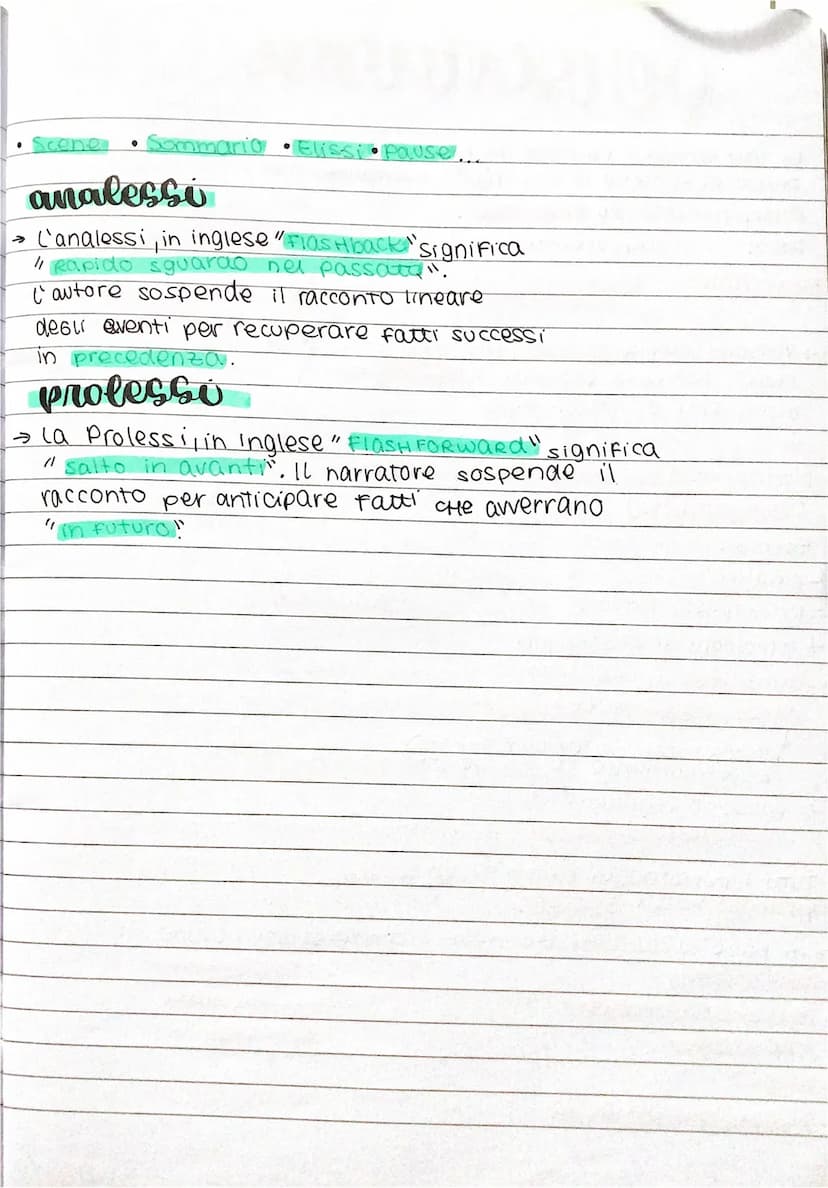 • Scene • Sommario • Elissi • pause...
analessi
→ L'analessi, in inglese "Flashback" significa
" Rapido sguardo nel passato".
L'autore sospende il racconto lineare
degli eventi per recuperare fatti successi
in precedenza.
prolessi
→ La Prolessi, in inglese "FlashForward" significa
" salto in avanti". Il narratore sospende il
racconto per anticipare Fatti che avverrano
"in Futuro".